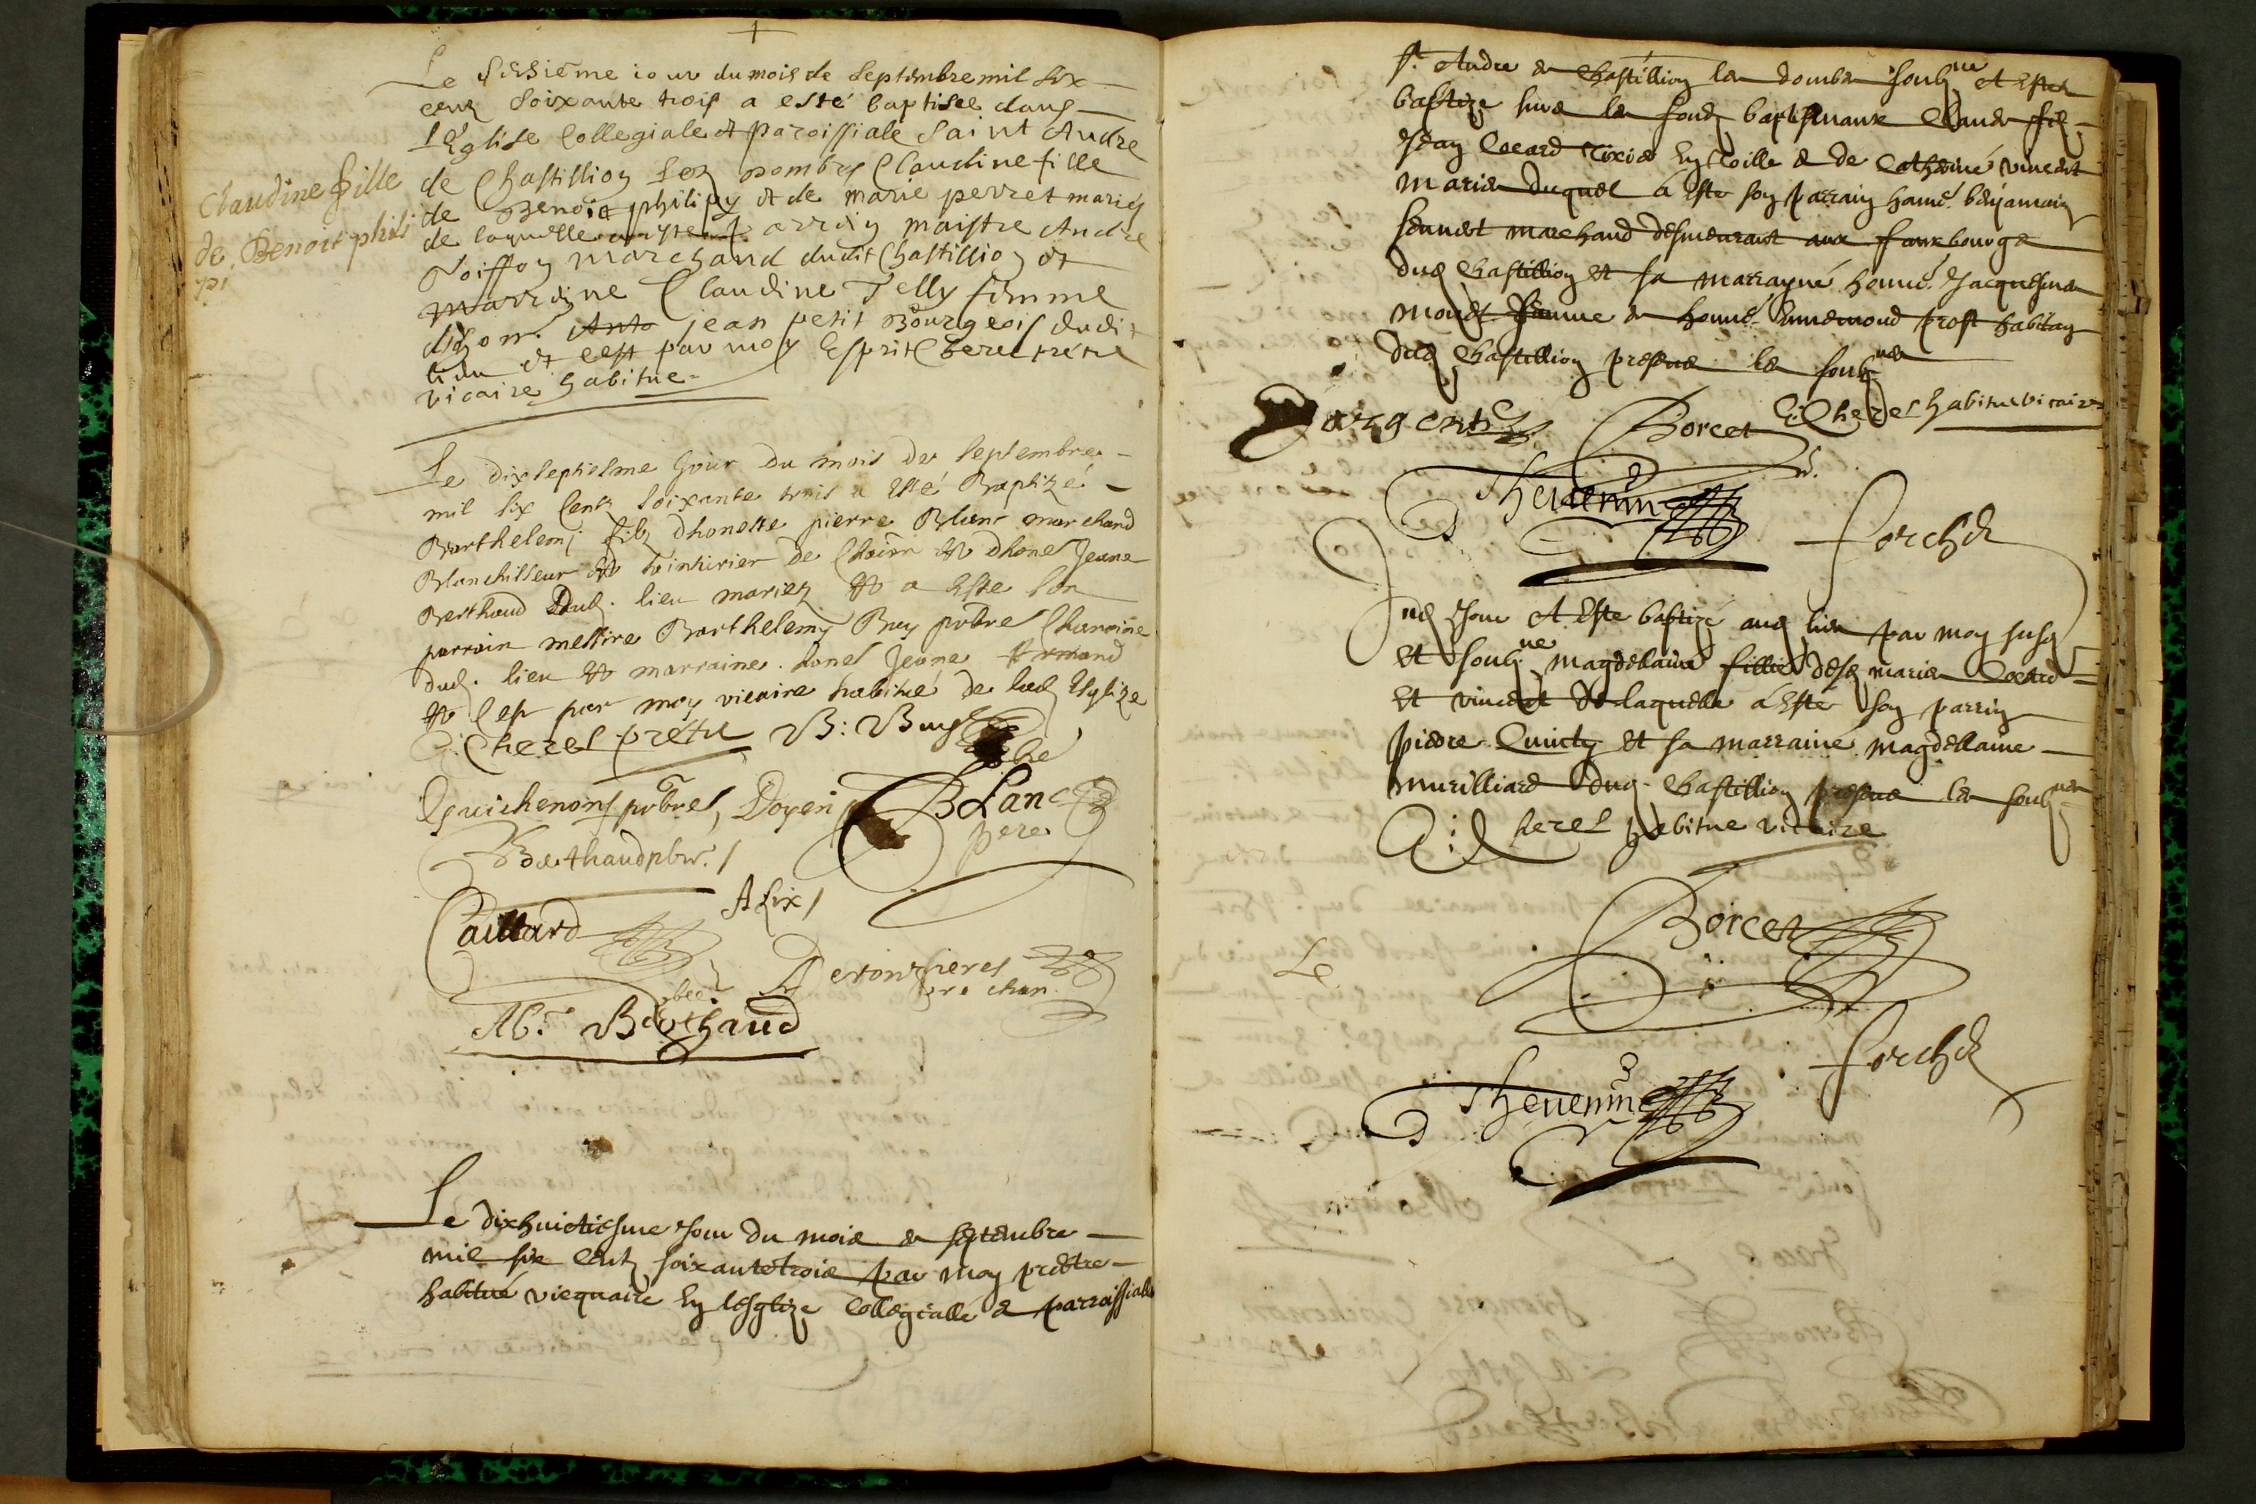 Claudine fille
de Benoit phili
pi
Le sesiéme iour du mois de septembre mil six
cens soixante trois a esté baptisee dans
l'Eglise Collegiale et paroissiale saint Andre
de Chastillion les dombes Claudine fille
de Benoit philipy et de marie perret mariés
de laquelle parrin maistre Andre
marchand dudit Chastillion et
marrine Claudine Telly femme
jean petit Bourgeois dudit
lieu et c'est par moy Esprit Cherel prétre
vicaire habitue
Le dixseptiesme Jour du mois de septembre
mil six Centz soixante trois a esté Baptizé
Barthelemj filz dhoneste pierre Blanc marchand
Blanchisseur et teinturier de et dhones Jeane
Berthaud Dud. lieu mariez et a este son
parrain messire Barthelemy Buy pbre Chanoine
dud. lieu et marraine honés Jeane
et c'est par moy vicaire habitué de lad Eglize
E. Cherel prétre B: Buy
Guichenon pbre, Doyen BLanc
pere
Berthaud pbr.
Caillard Alix
Deronzieres
pre chan.
Ab. Berthaud
Le dixhuictiesme Jour du mois de septembre
mil six Centz soixantetrois par moy prestre
habitué vicquaire En lesglize Collegialle & parroissialle
St. Andre de Chastillion les dombes soubne. A Este
baptize sur les fondz baptismaux Claude filz
Jean Cocard & de Catherine vincent
mariez duquel a este son parrain honé. benjamin
marchand desmeurant aux fauxbourgs
dud Chastillion et sa marrayne honné. Jacquesme
femme de honné. Ennemond prost habitan
dud Chastillion presens les soubnes
E: Cherel habitue vicaire
Dargent Borcet
Thevenin forchet
Dud Jour A Este baptizé aud lieu par moy susd
et soubne. magdellaine fillie desd mariez Cocard
et vincent de laquelle a Este son parrin
pierre et sa marraine magdellaine
murilliard dud. Chastillion presens les soubnes
E: Cherel habitue vicaire
Borcet
Le
forchet
Thevenin